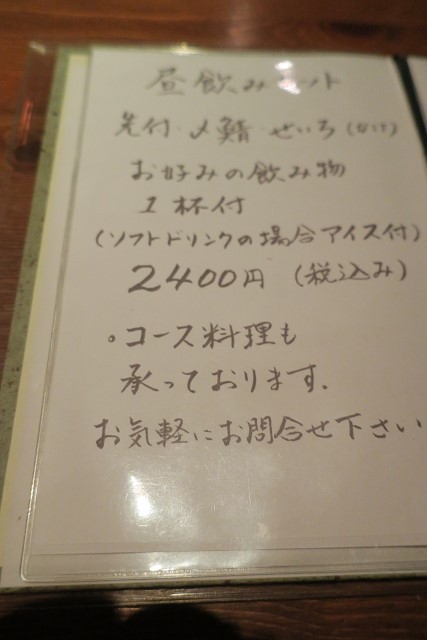 昼飲みセット
先付・〆鯖・せいろ(かけ)
お好みの飲み物
1杯付
(ソフトドリンクの場合アイス付)
2400円 (税込み)
。コース料理も
承っております.
お気軽にお問合せ下さい